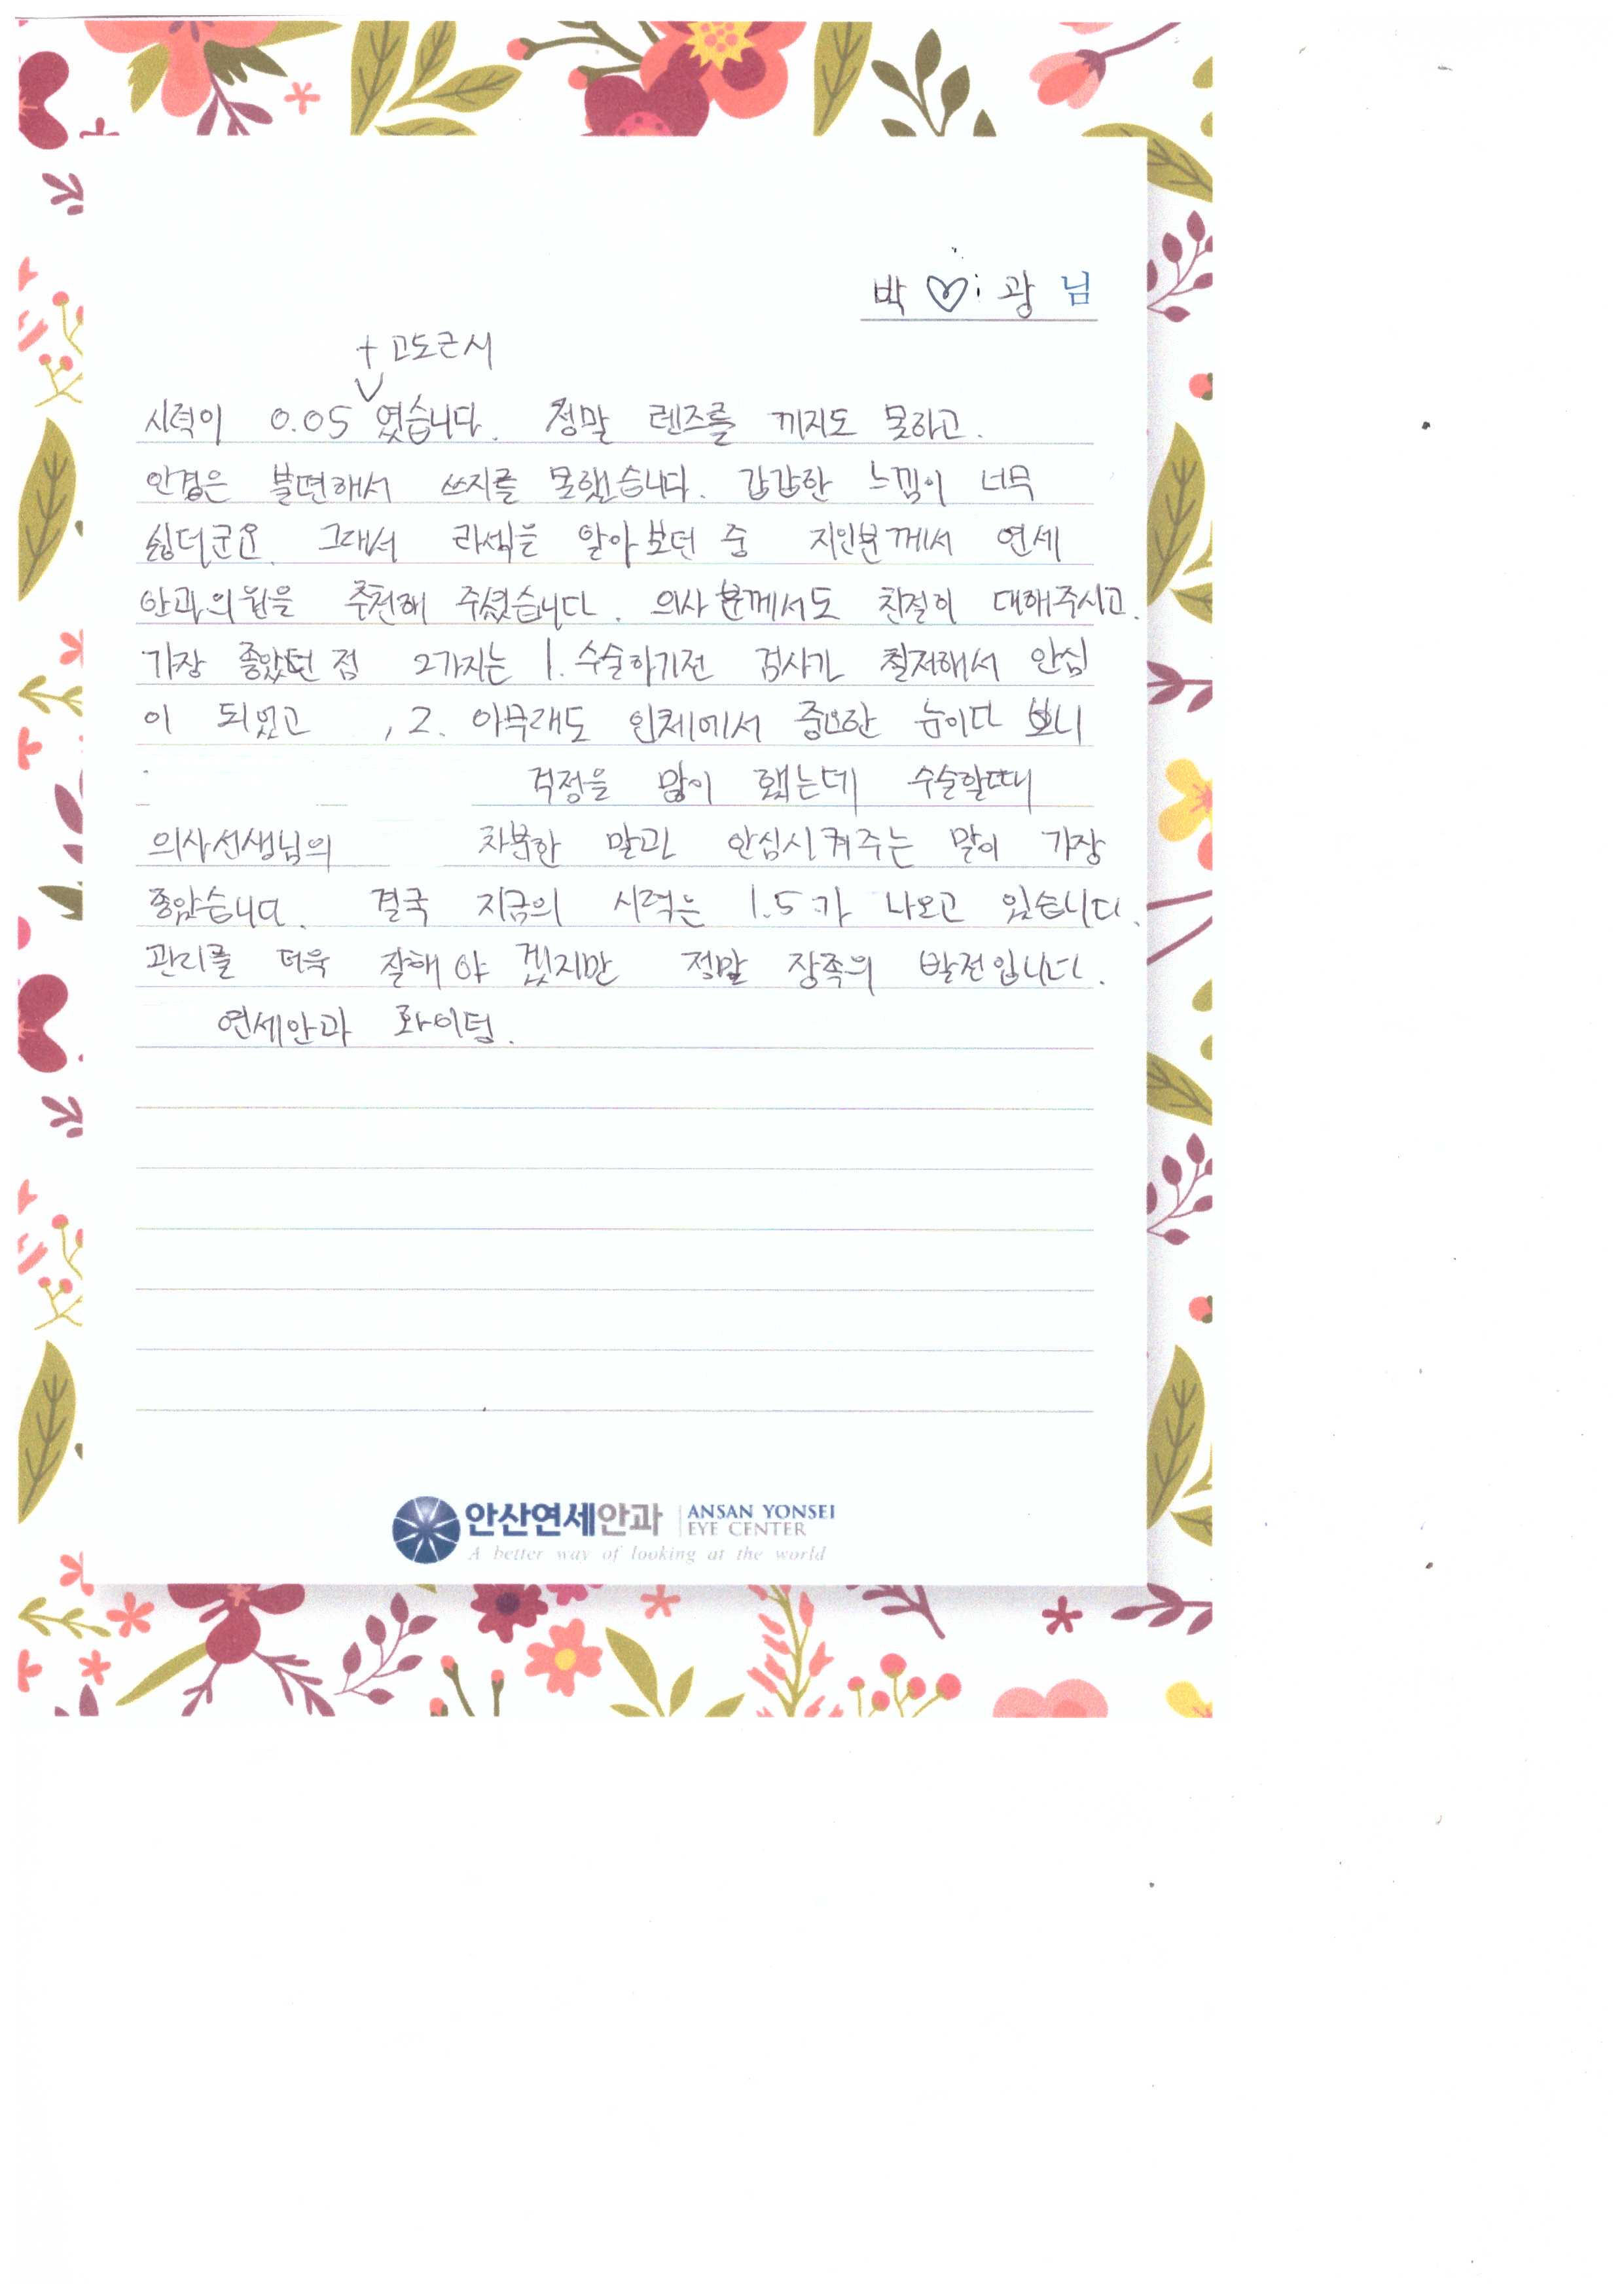 박 ♡ 광 님
+ 고도근시
시력이 0.05 였습니다. 정말 렌즈를 끼지도 못하고.
안경은 불편해서 쓰지를 못했습니다. 갑갑한 느낌이 너무
싫더군요. 그래서 라섹을 알아보던 중 지인분께서 연세
안과의원을 추천해 주셨습니다. 의사분께서도 친절히 대해주시고.
가장 좋았던 점 2가지는 1. 수술하기전 검사가 철저해서 안심
이 되었고 , 2. 아무래도 인체에서 중요한 눈이다 보니
걱정을 많이 했는데 수술할때
의사선생님의 차분한 말과 안심시켜주는 말이 가장
좋았습니다. 결국 지금의 시력은 1.5가 나오고 있습니다.
관리를 더욱 잘해야 겠지만 정말 장족의 발전입니다.
연세안과 화이팅.
안산연세안과 ANSAN YONSEI
EYE CENTER
A better way of looking at the world